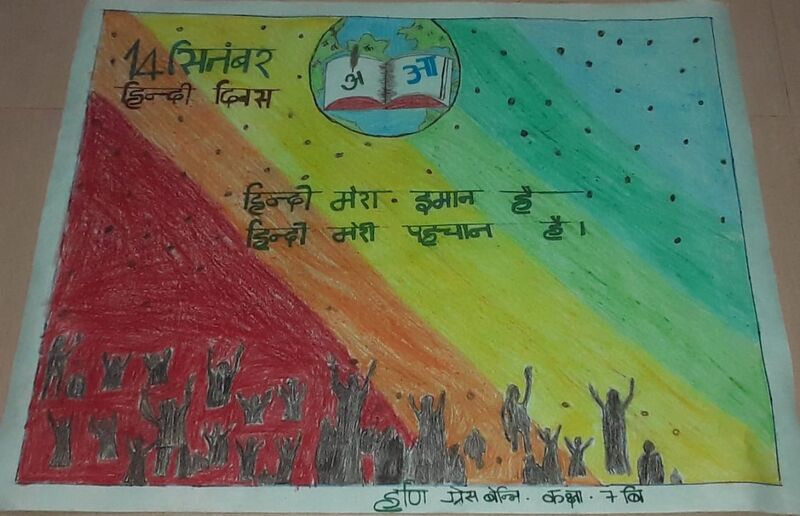 14 सितंबर
हिन्दी दिवस
अ आ
हिन्दी मेरा. इमान है
हिन्दी मेरी पहचान है।
कक्षा. 7